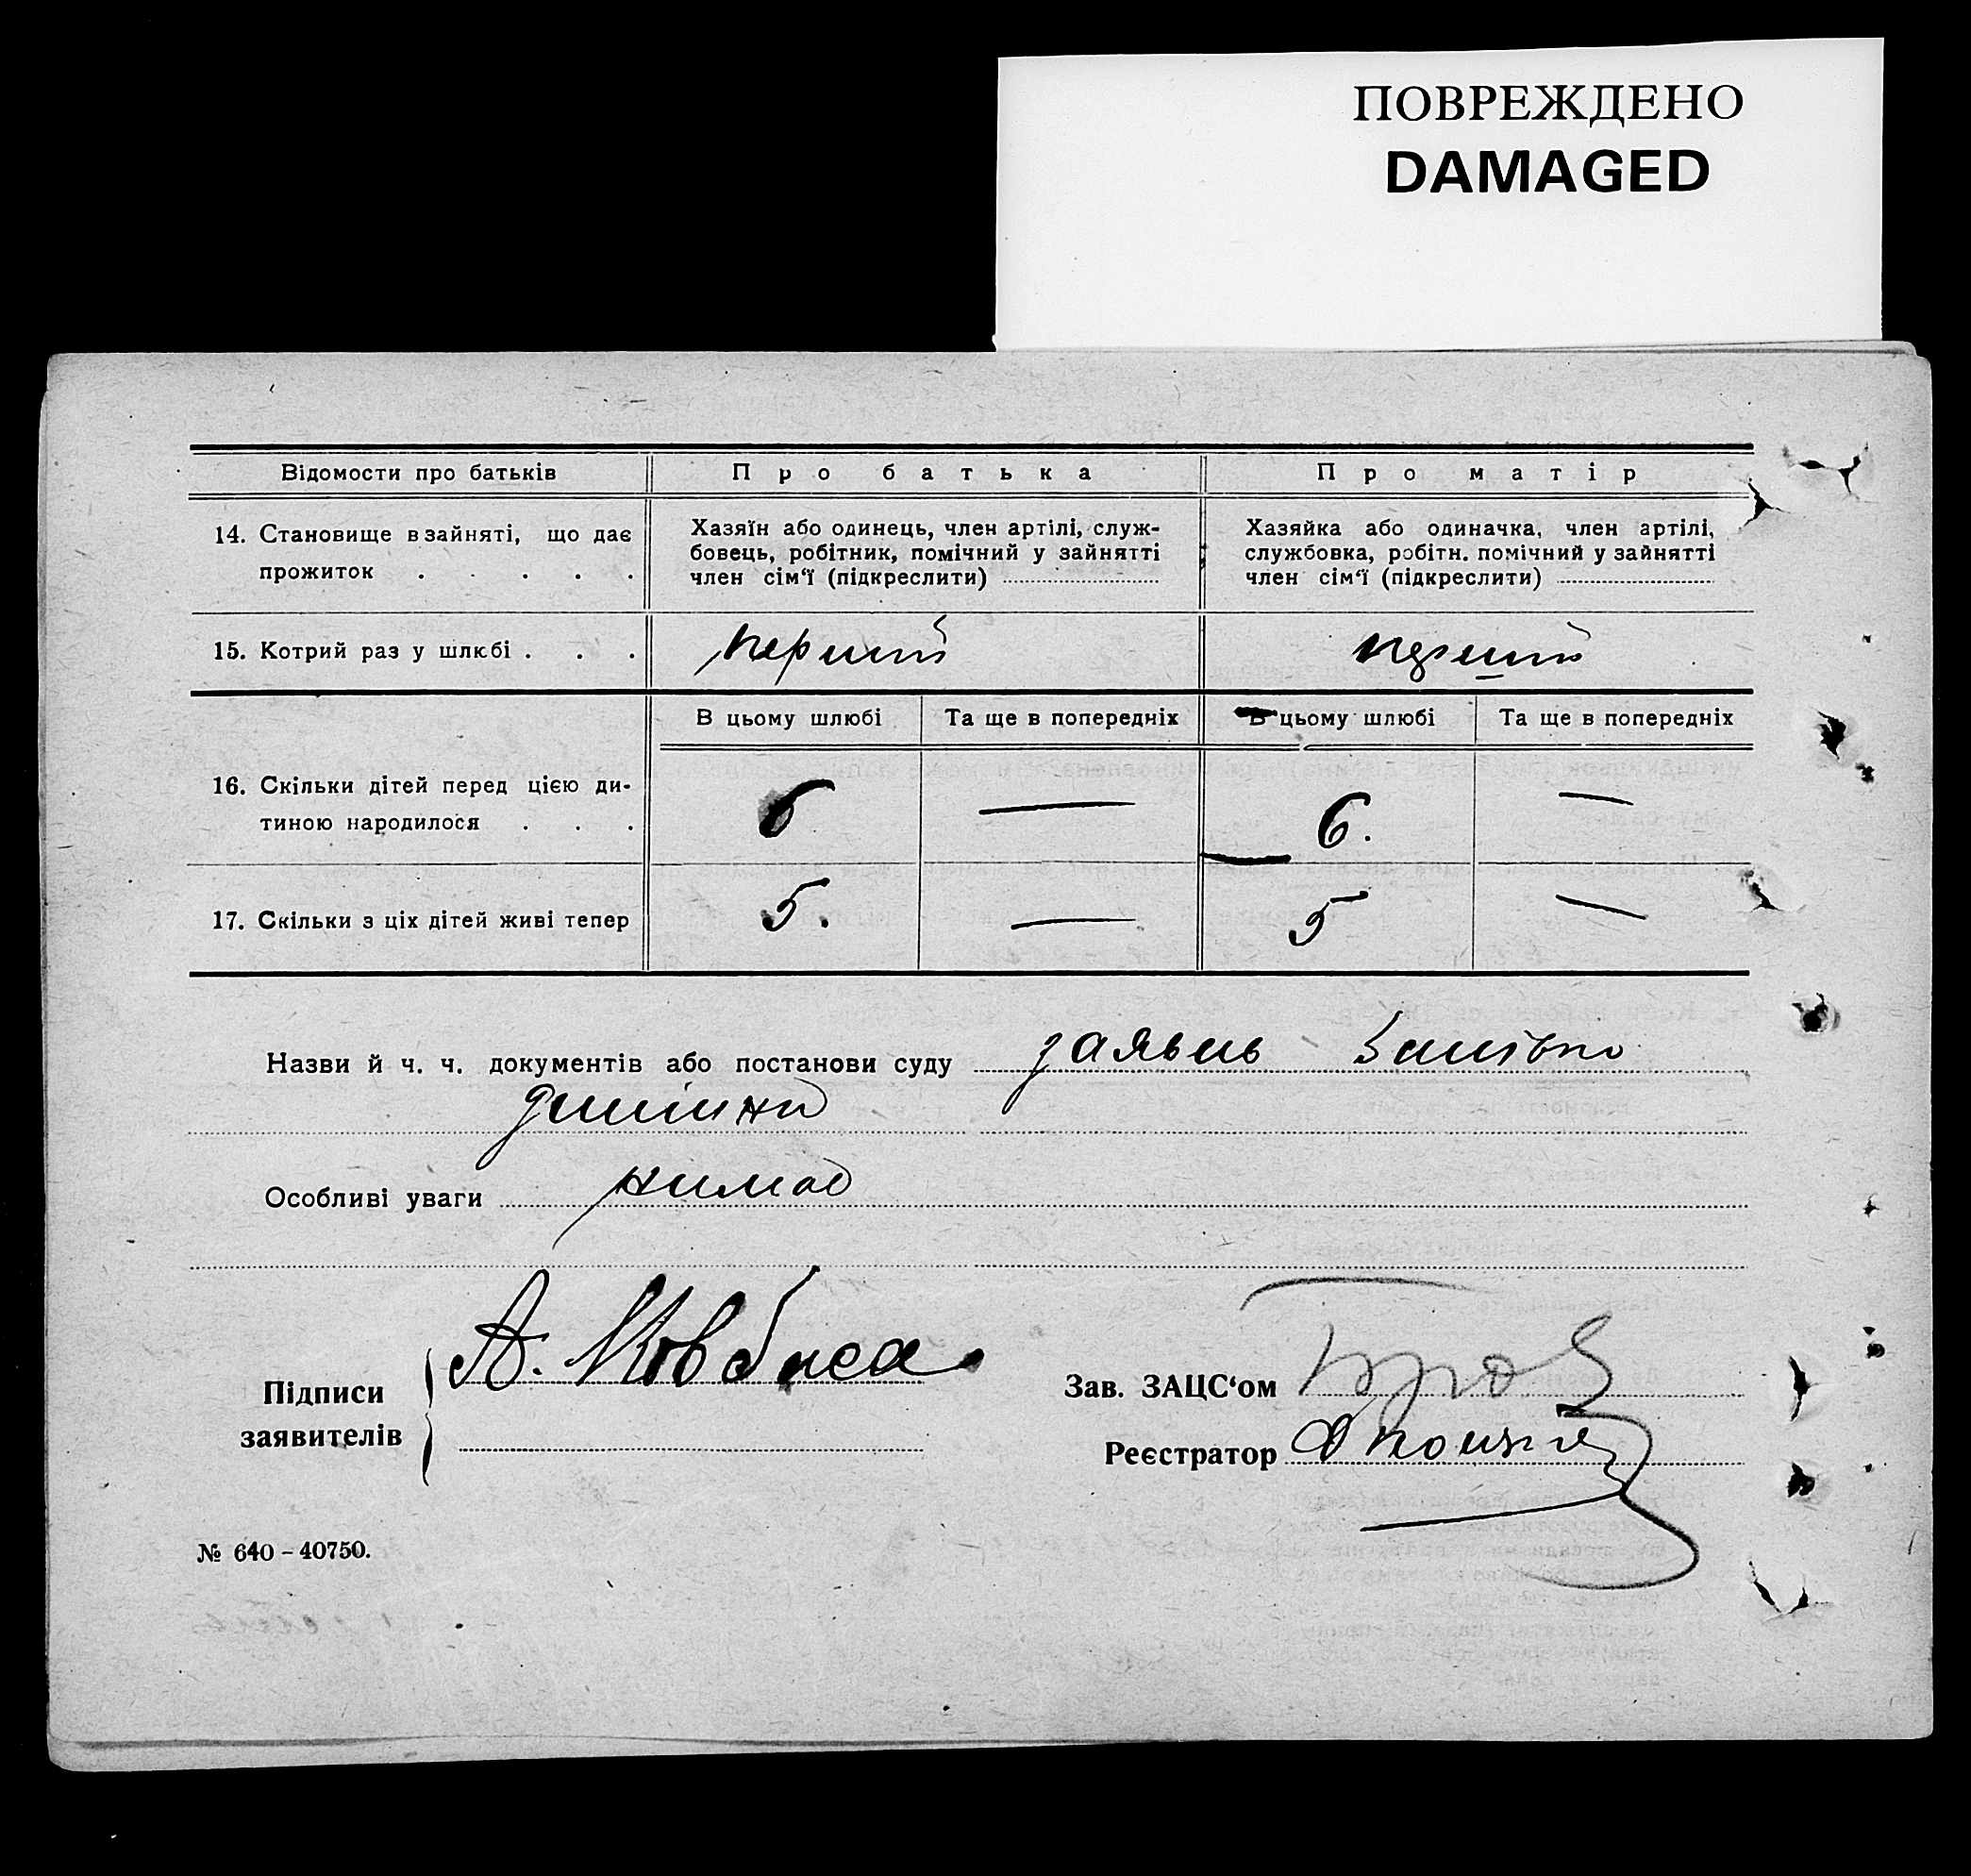 ПОВРЕЖДЕНО
DAMAGED
Відомости про батьків
Про батька
Про матір
14. Становище в зайняті, що дає
прожиток . . . . .
Хазяїн або одинець, член артілі, служ-
бовець, робітник, помічний у зайнятті
член сім‘ї (підкреслити)
Хазяйка або одиначка, член артілі,
службовка, робітн. помічний у зайнятті
член сім‘ї (підкреслити)
15. Котрий раз у шлюбі . . .
перший
перший
В цьому шлюбі
Та ще в попередніх
В цьому шлюбі
Та ще в попередніх
16. Скільки дітей перед цією ди-
тиною народилося . . .
6
—
6.
—
17. Скільки з ціх дітей живі тепер
5.
—
5
—
Назви й ч. ч. документів або постанови суду
Особливі уваги
Підписи
заявителів
А.
Зав. ЗАЦС‘ом
Реєстратор
№ 640 – 40750.